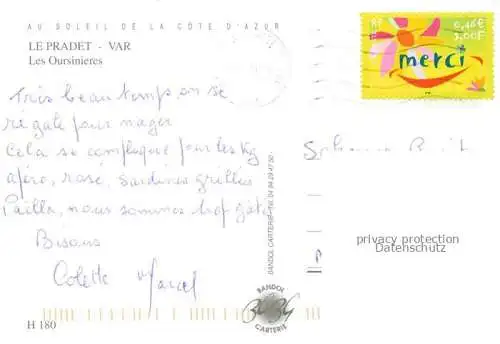 AU SOLEIL DE LA CÔTE D'AZUR
LE PRADET - VAR
Les Oursinieres
RF
0,46€
3,00F
merci
Très beau temps on se
régale pour nager
Cela se complique pour les Kg
apéro, rosé, sardines grillées
Paëlla, nous sommes trop gâtés
Bisous
Colette Marcel
BANDOL CARTERIE
privacy protection
Datenschutz
BANDOL
CARTERIE
H 180